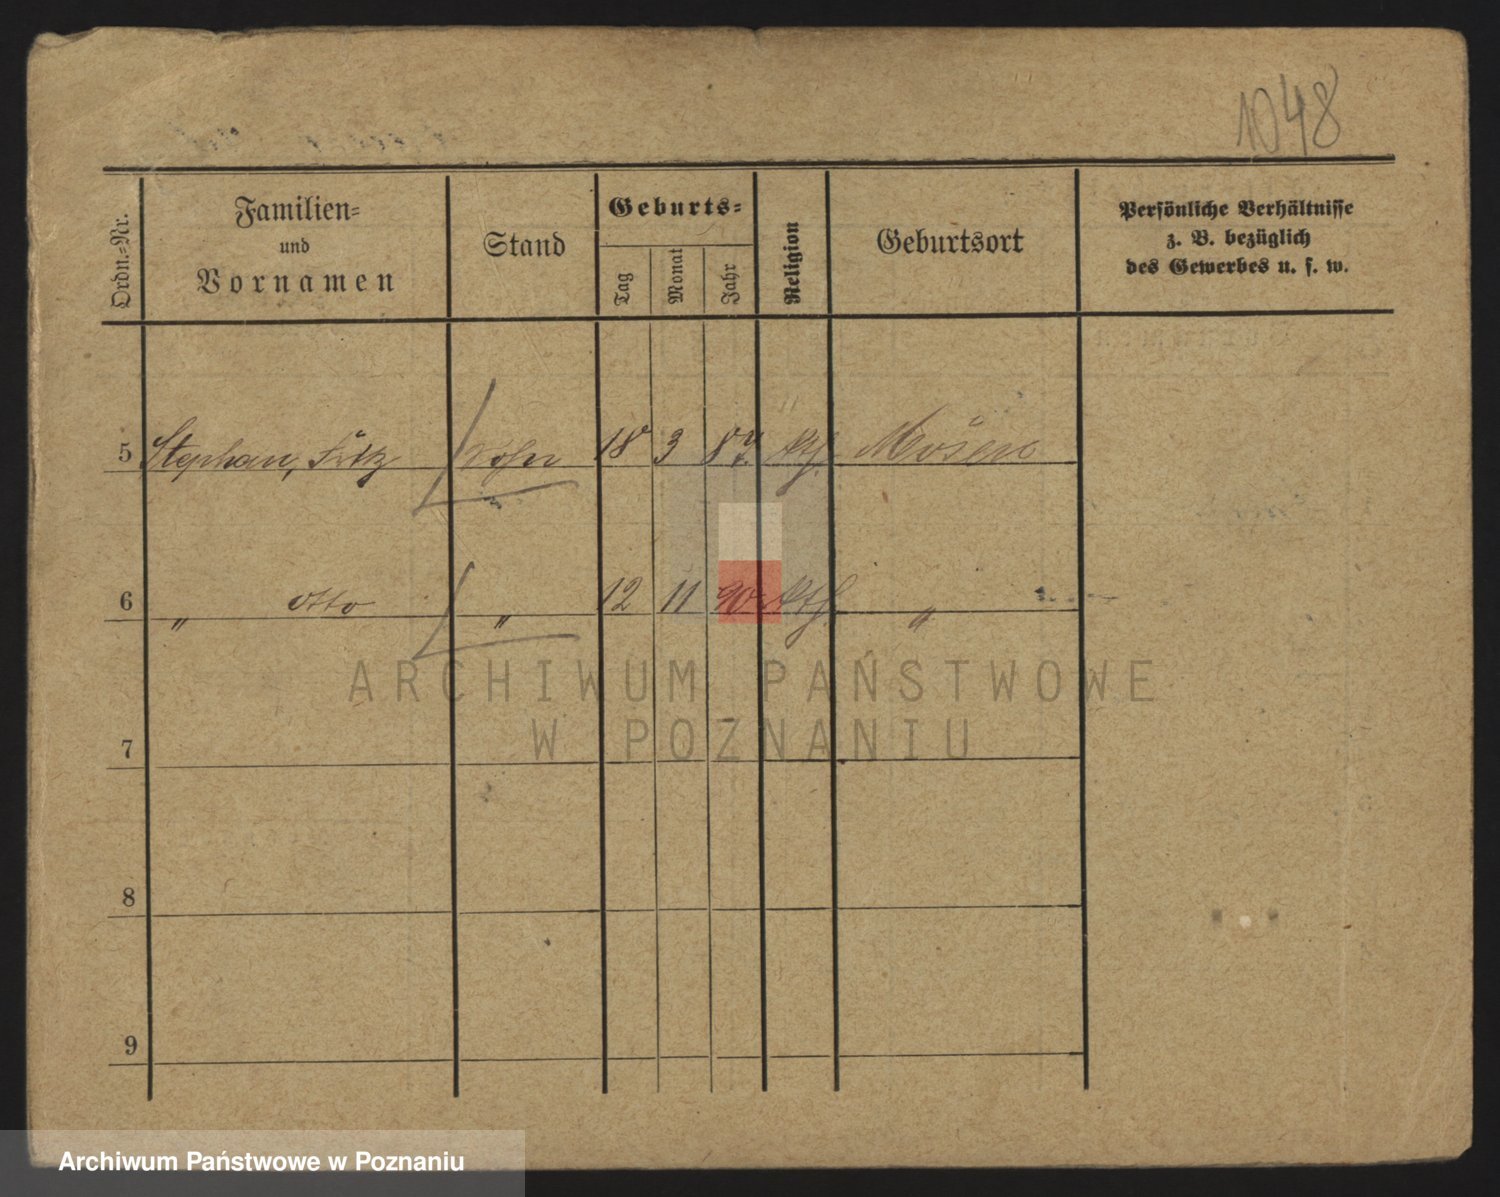 1048
Ordn.-Nr.
Familien-
und
Vornamen
Stand
Geburts-
Tag
Monat
Jahr
Religion
Geburtsort
Persönliche Verhältnisse
z. B. bezüglich
des Gewerbes u. s. w.
5 Stephan, Fritz 18 3 87. kth.
6 " Otto " 12 11 90. kth. "
ARCHIWUM PAŃSTWOWE
W POZNANIU
7
8
9
Archiwum Państwowe w Poznaniu